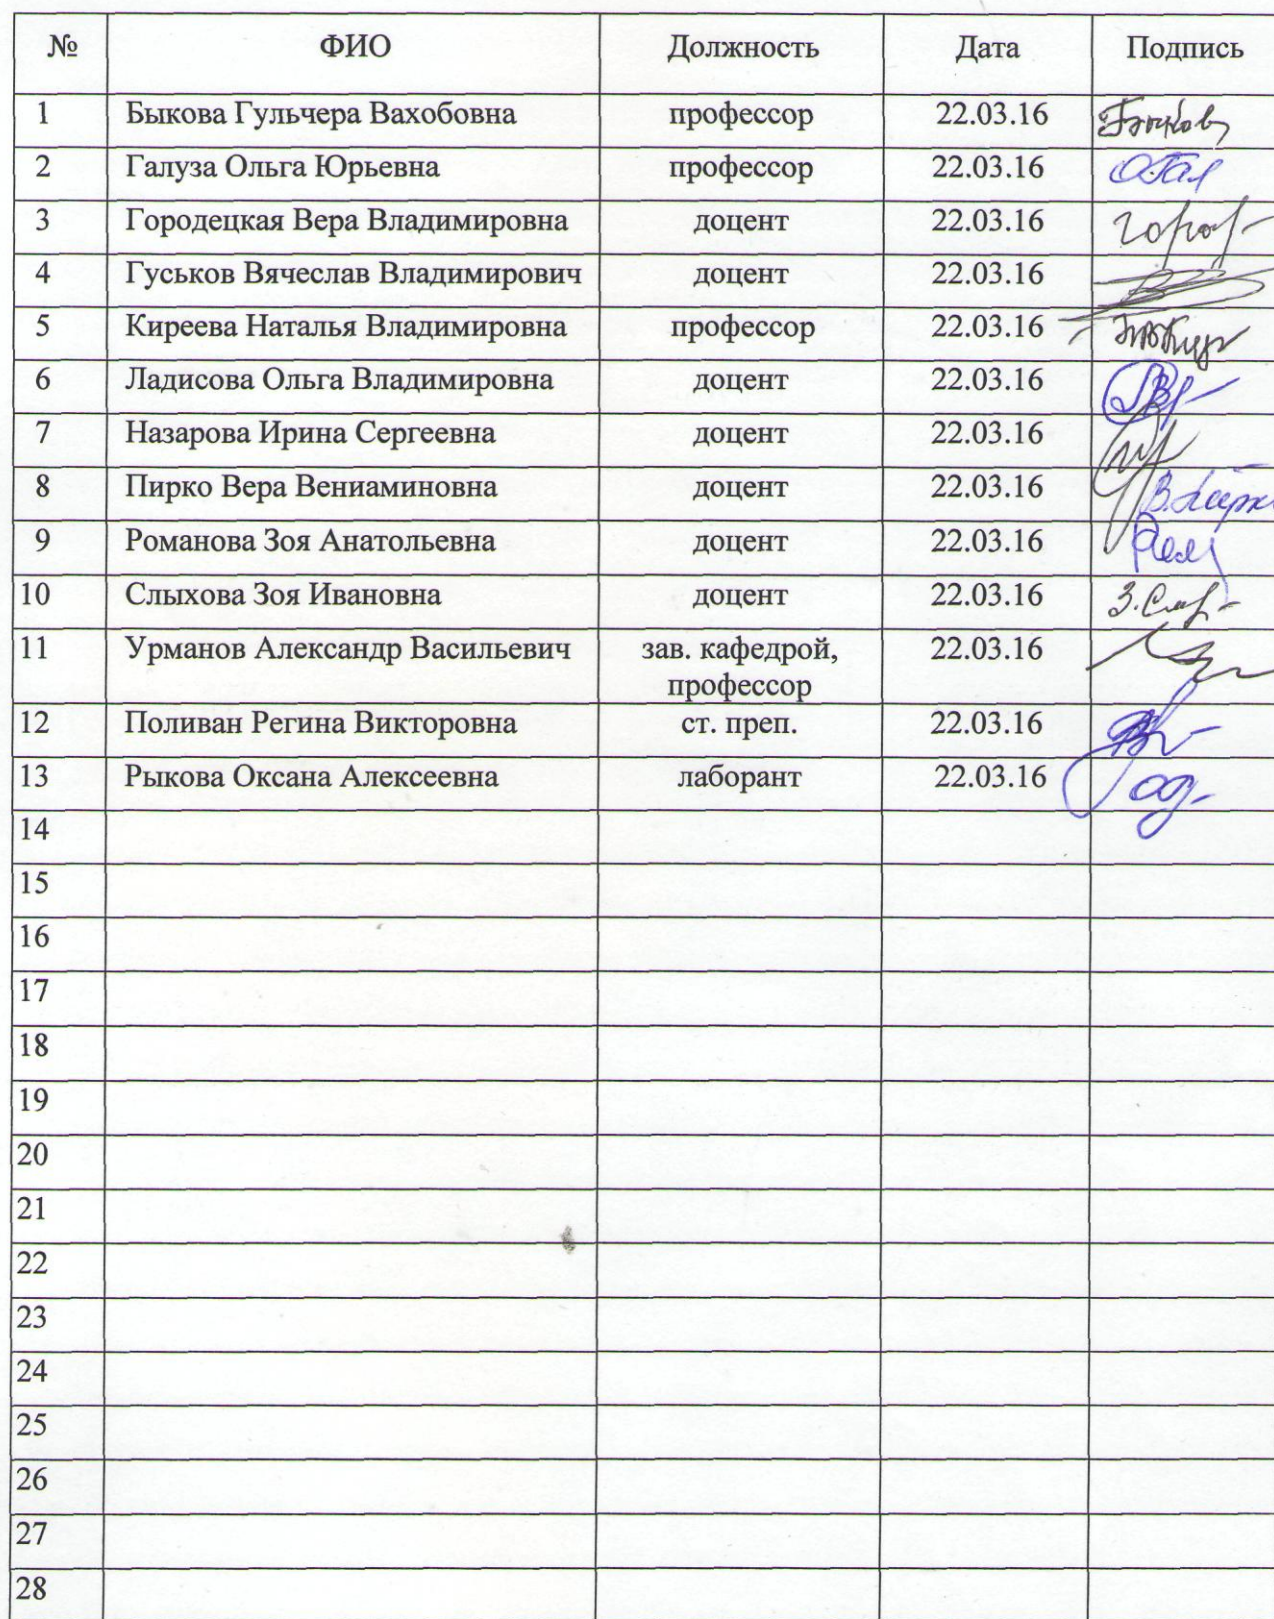 № ФИО Должность Дата Подпись
1 Быкова Гульчера Вахобовна профессор 22.03.16
2 Галуза Ольга Юрьевна профессор 22.03.16
3 Городецкая Вера Владимировна доцент 22.03.16
4 Гуськов Вячеслав Владимирович доцент 22.03.16
5 Киреева Наталья Владимировна профессор 22.03.16
6 Ладисова Ольга Владимировна доцент 22.03.16
7 Назарова Ирина Сергеевна доцент 22.03.16
8 Пирко Вера Вениаминовна доцент 22.03.16
9 Романова Зоя Анатольевна доцент 22.03.16
10 Слыхова Зоя Ивановна доцент 22.03.16
11 Урманов Александр Васильевич зав. кафедрой, 22.03.16
профессор
12 Поливан Регина Викторовна ст. преп. 22.03.16
13 Рыкова Оксана Алексеевна лаборант 22.03.16
14
15
16
17
18
19
20
21
22
23
24
25
26
27
28